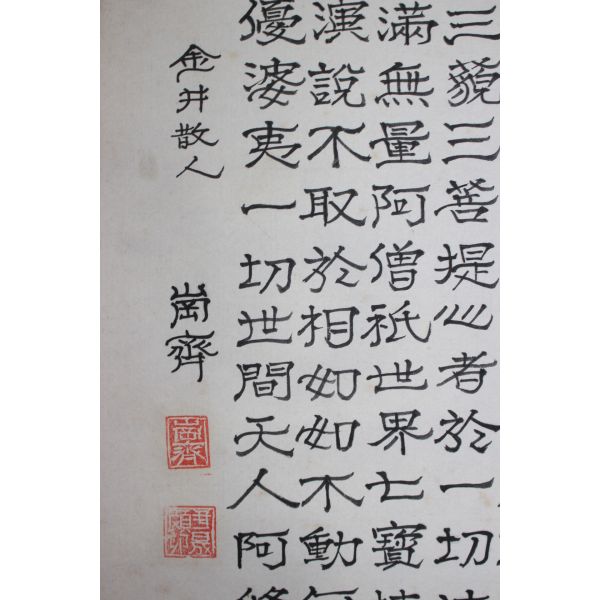 三藐三菩提心者於一切
滿無量阿僧祇世界七寶
演說不取於相如如不動
優婆夷一切世間天人阿
金井散人
耑齊